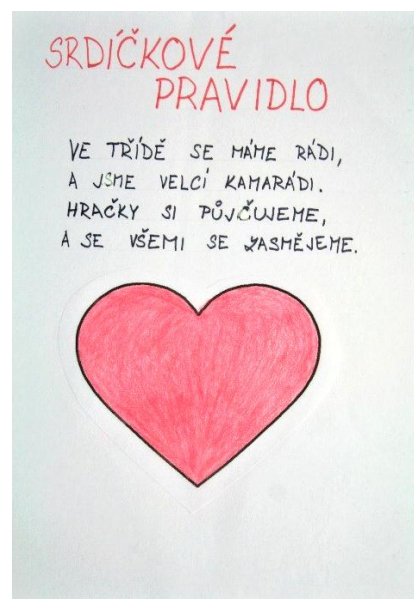 SRDÍČKOVÉ
PRAVIDLO
VE TŘÍDĚ SE MÁME RÁDI,
A JSME VELCÍ KAMARÁDI.
HRAČKY SI PŮJČUJEME,
A SE VŠEMI SE ZASMĚJEME.